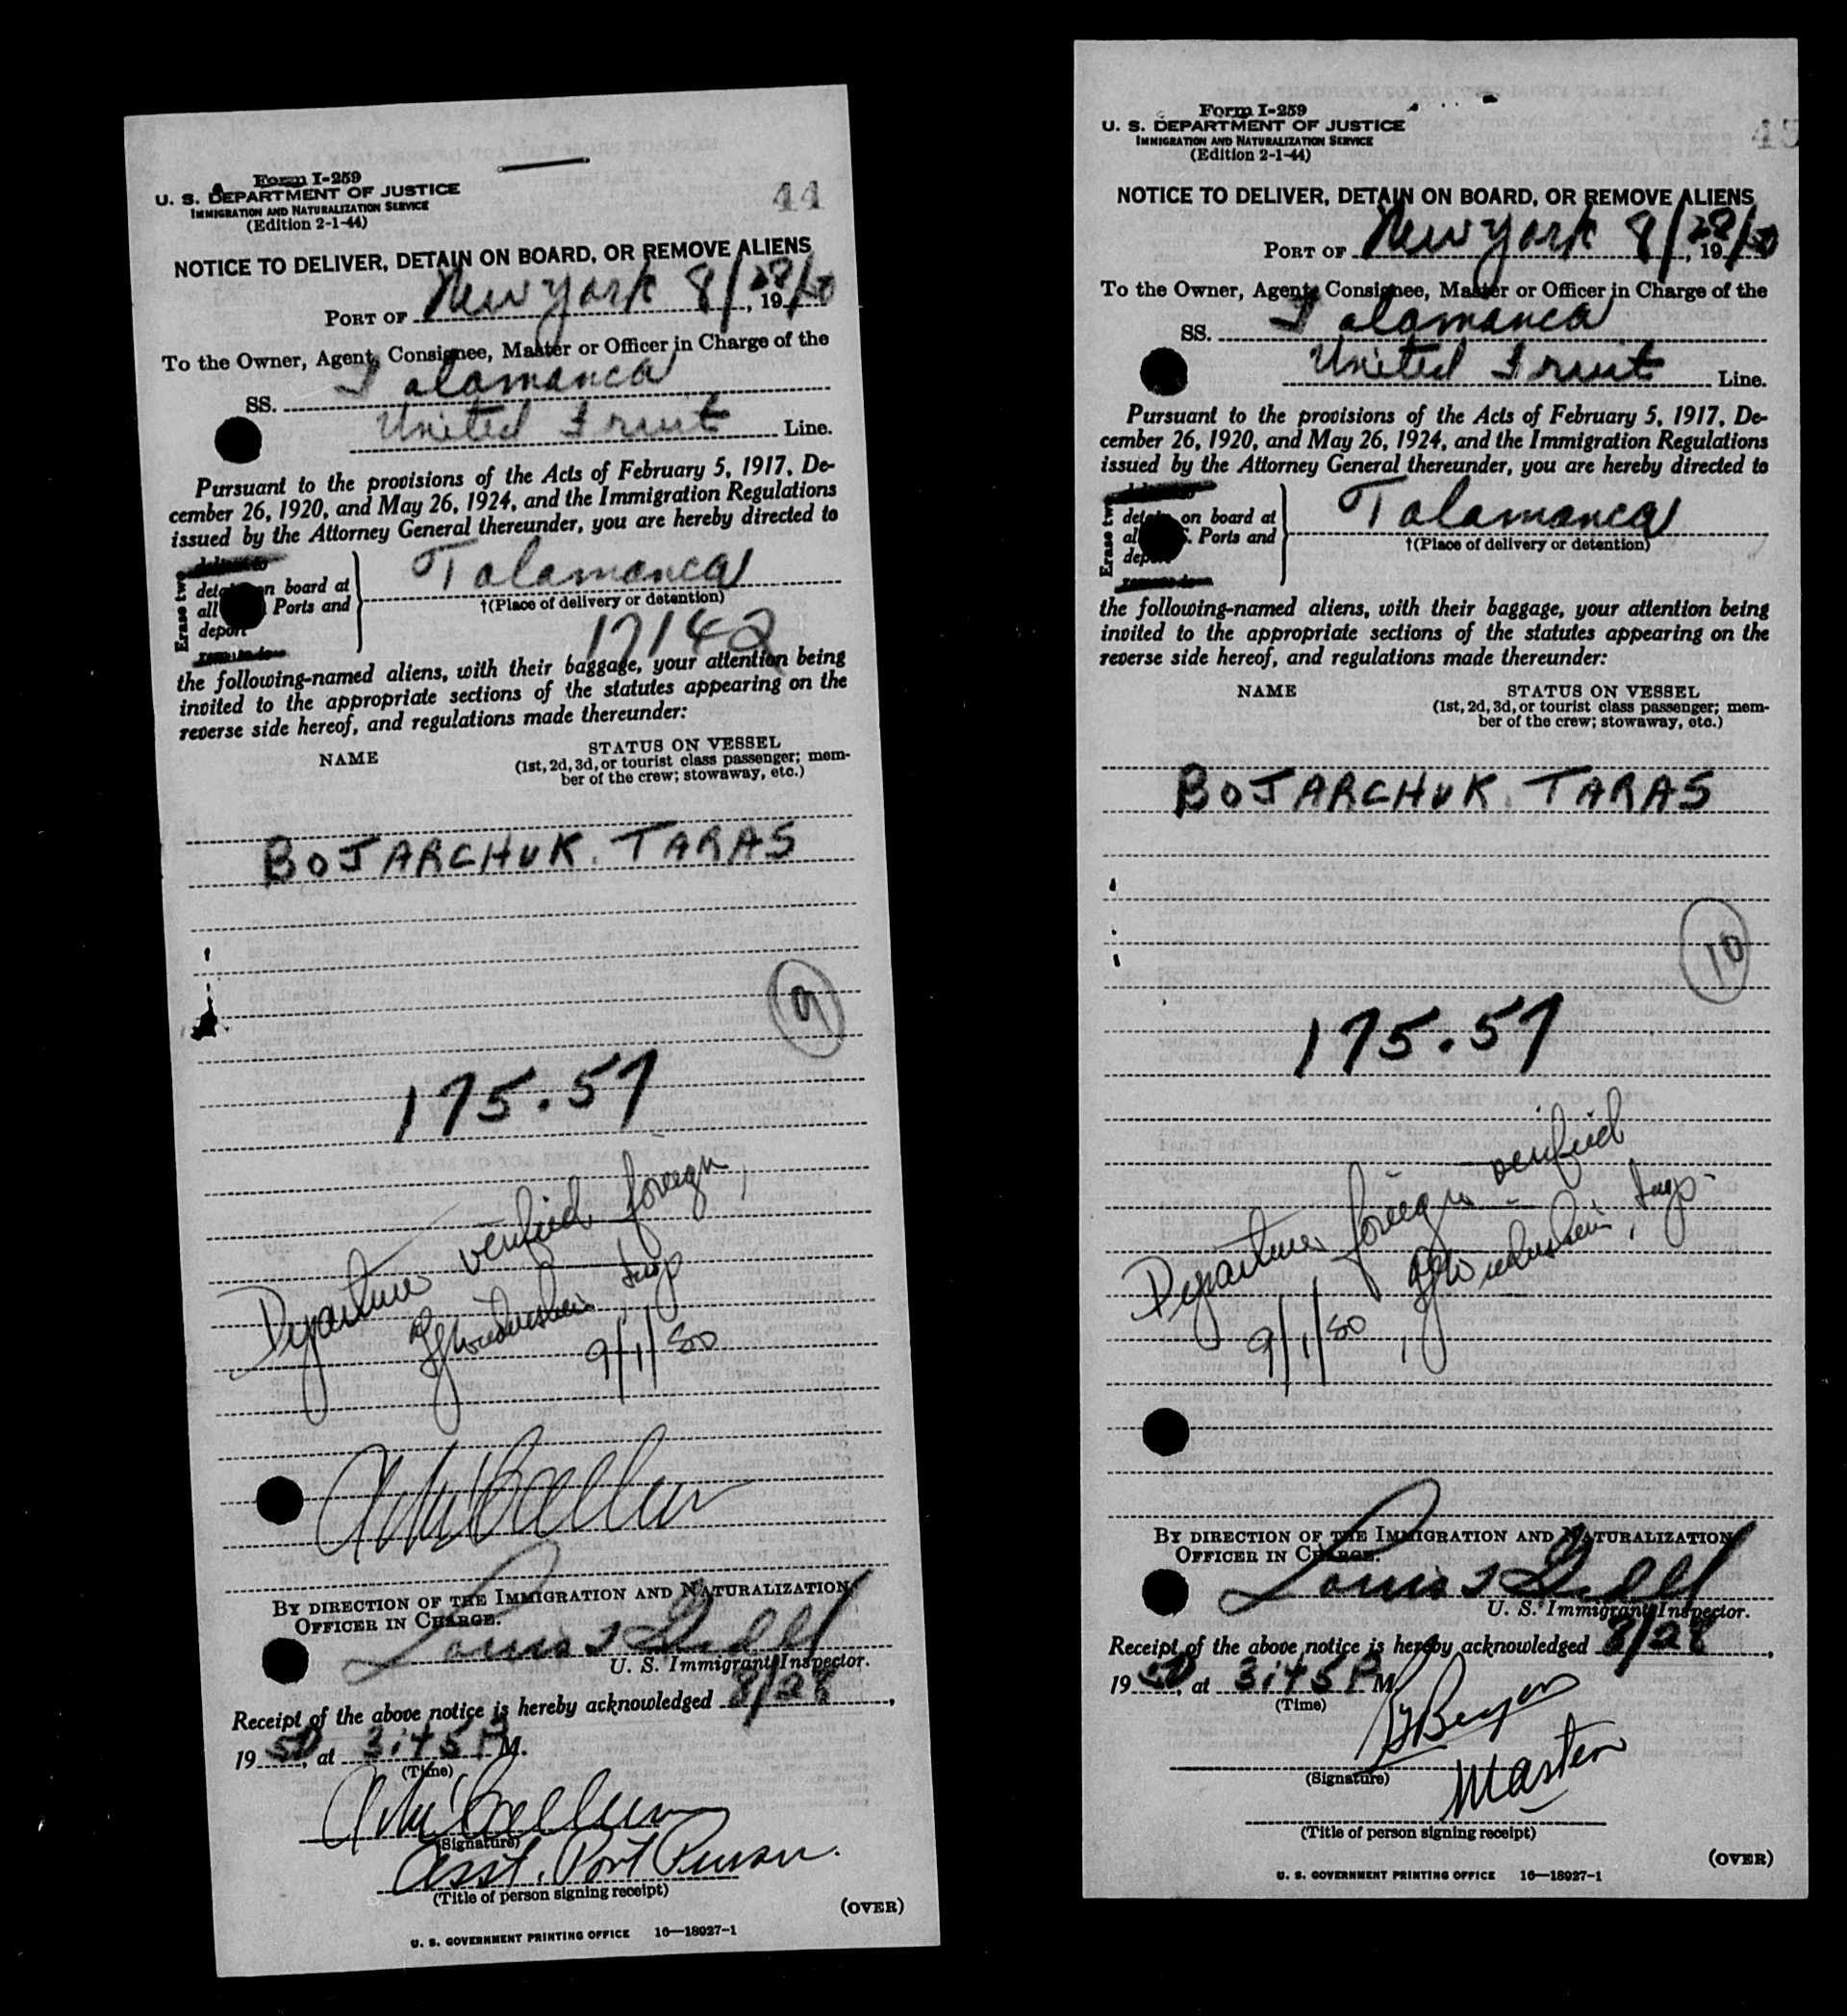 Form I-259
U. S. DEPARTMENT OF JUSTICE
IMMIGRATION AND NATURALIZATION SERVICE
(Edition 2-1-44)
44
NOTICE TO DELIVER, DETAIN ON BOARD, OR REMOVE ALIENS
PORT OF New York 8/28, 19/50
To the Owner, Agent, Consignee, Master or Officer in Charge of the
SS. Talamanca
United Fruit Line.
Pursuant to the provisions of the Acts of February 5, 1917, De-
cember 26, 1920, and May 26, 1924, and the Immigration Regulations
issued by the Attorney General thereunder, you are hereby directed to
Erase two
on board at
all Ports and
deport
Talamanca
†(Place of delivery or detention)
17142
the following-named aliens, with their baggage, your attention being
invited to the appropriate sections of the statutes appearing on the
reverse side hereof, and regulations made thereunder:
NAME STATUS ON VESSEL
(1st, 2d, 3d, or tourist class passenger; mem-
ber of the crew; stowaway, etc.)
BOJARCHUK. TARAS
9
175.57
Departure verified foreign
Insp
9/1/50
BY DIRECTION OF THE IMMIGRATION AND NATURALIZATION
OFFICER IN CHARGE.
Louis
U. S. Immigrant Inspector.
Receipt of the above notice is hereby acknowledged 8/28,
19 50, at 3:45 P M.
(Time)
(Signature)
Asst. Port Purser.
(Title of person signing receipt)
(OVER)
U. S. GOVERNMENT PRINTING OFFICE 16—18027-1
Form I-259
U. S. DEPARTMENT OF JUSTICE
IMMIGRATION AND NATURALIZATION SERVICE
(Edition 2-1-44)
45
NOTICE TO DELIVER, DETAIN ON BOARD, OR REMOVE ALIENS
PORT OF New York 8/28, 19/50
To the Owner, Agent, Consignee, Master or Officer in Charge of the
SS. Talamanca
United Fruit Line.
Pursuant to the provisions of the Acts of February 5, 1917, De-
cember 26, 1920, and May 26, 1924, and the Immigration Regulations
issued by the Attorney General thereunder, you are hereby directed to
Erase two
on board at
Ports and
Talamanca
†(Place of delivery or detention)
the following-named aliens, with their baggage, your attention being
invited to the appropriate sections of the statutes appearing on the
reverse side hereof, and regulations made thereunder:
NAME STATUS ON VESSEL
(1st, 2d, 3d, or tourist class passenger; mem-
ber of the crew; stowaway, etc.)
BOJARCHUK. TARAS
10
175.57
Departure foreign verified
Insp.
9/1/50
BY DIRECTION OF THE IMMIGRATION AND NATURALIZATION
OFFICER IN CHARGE.
Louis
U. S. Immigrant Inspector.
Receipt of the above notice is hereby acknowledged 8/28,
19 50, at 3:45 P M.
(Time)
(Signature)
Master
(Title of person signing receipt)
(OVER)
U. S. GOVERNMENT PRINTING OFFICE 16—18027-1